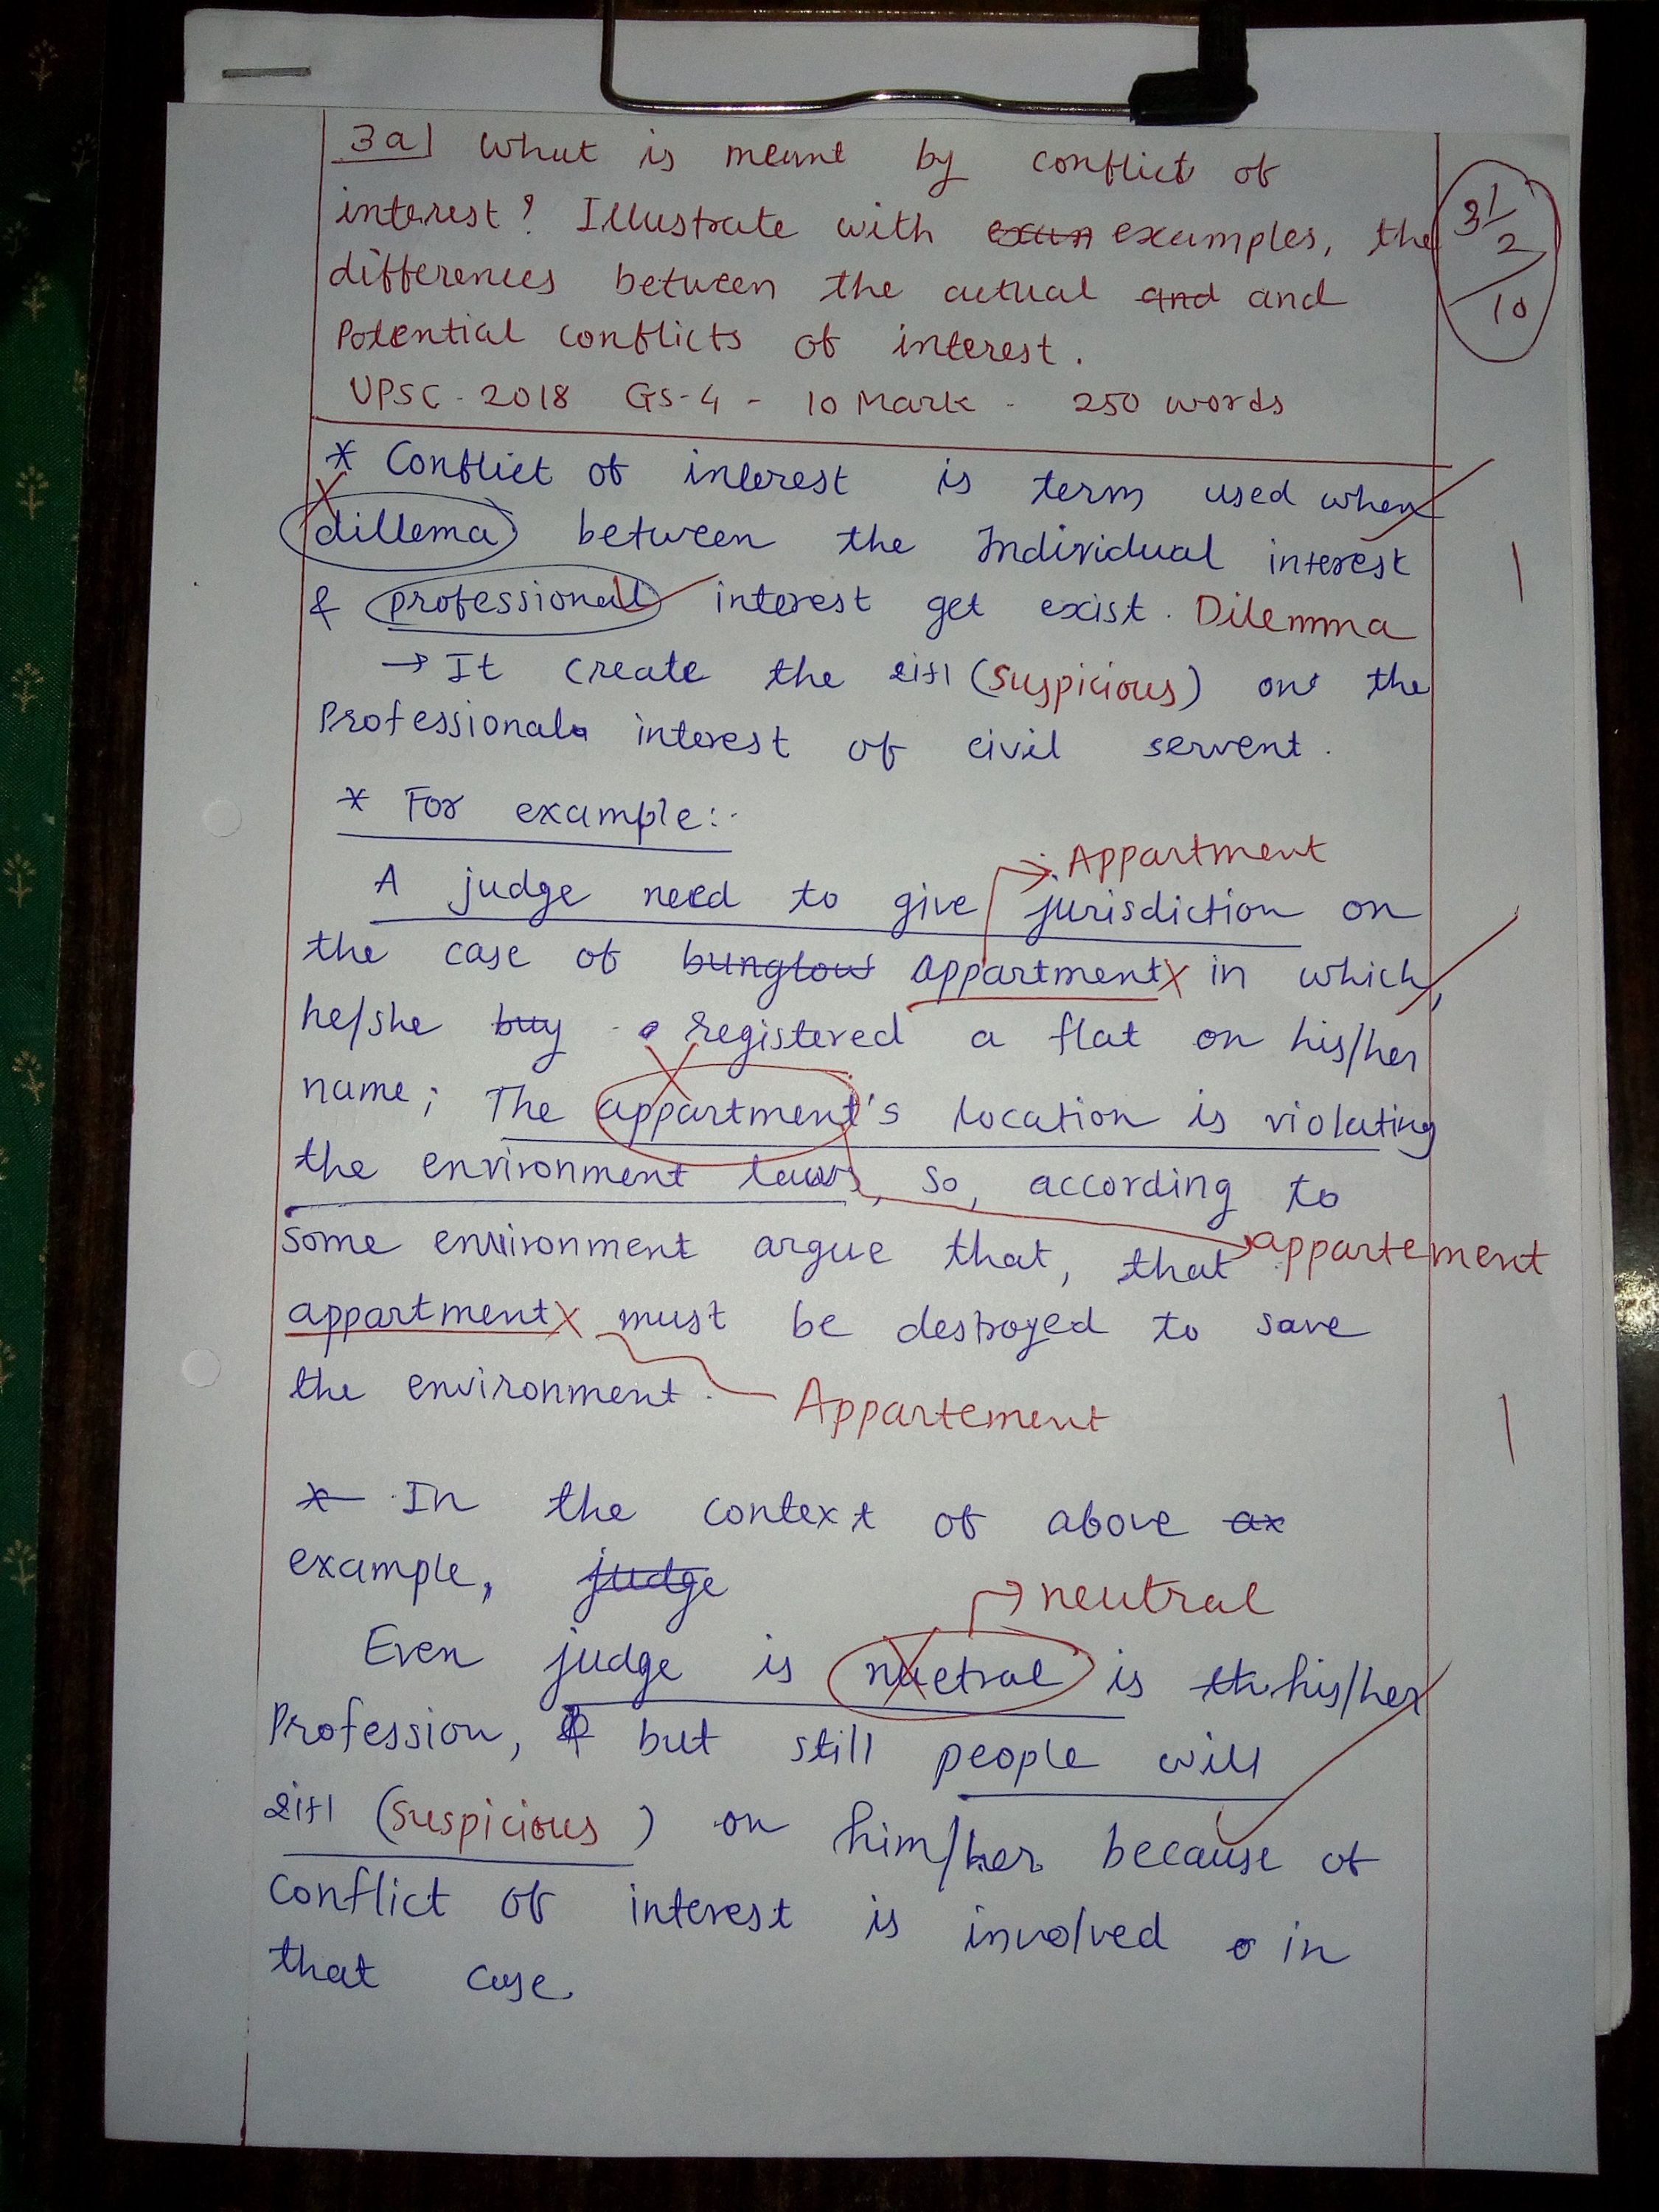 3a] What is meant by conflict of
interest? Illustrate with exam examples, the
differences between the actual and and
Potential conflicts of interest.
UPSC - 2018 GS-4 - 10 Mark - 250 words
3 1/2
/10
* Conflict of interest is term used when
dillema between the Individual interest
& professional interest get exist. Dilemma
1
→ It create the शक (suspicious) on the
Professional interest of civil servent.
* For example:-
Appartment
A judge need to give jurisdiction on
the case of bunglow appartment in which,
he/she buy registered a flat on his/her
name; The appartment's location is violating
the environment laws, so, according to
some environment argue that, that appartement
appartment must be destroyed to save
the environment.
Appartement
1
* In the context of above ax
example, judge
neutral
Even judge is nuetral is th his/her
Profession, but still people will
शक (suspicious) on him/her because of
conflict of interest is involved in
that case.